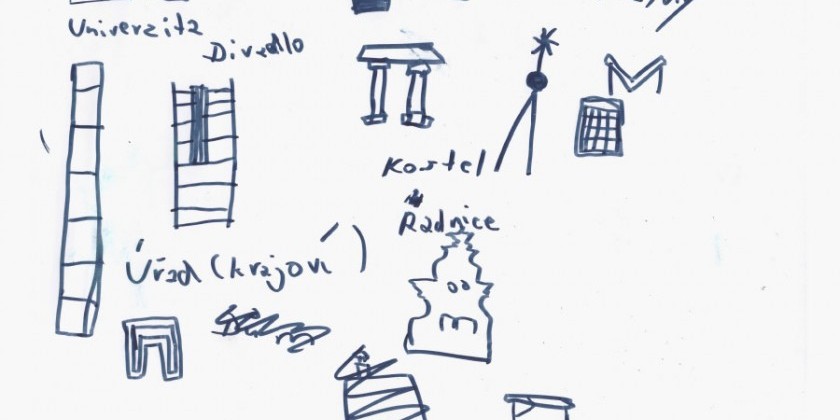 Univerzita
Divadlo
Kostel
Radnice
Úřad (krajový)